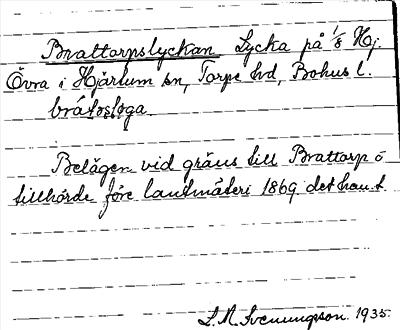 Brattorpslyckan Lycka på 1/8 Hj.
Övra i Hjärtum sn, Torpe hd, Bohusl.
Belägen vid gräns till Brattorp o
tillhörde före lantmäteri 1869 det hem.t
L. M. Svenungsson. 1935.